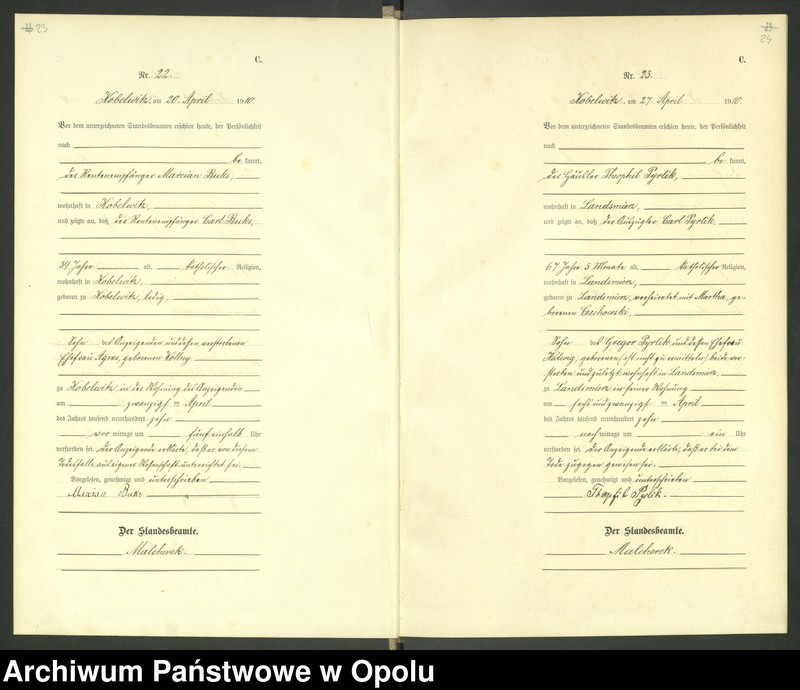 23
C.
Nr. 22.
Kobelwitz, am 20. April 1910.
Vor dem unterzeichneten Standesbeamten erschien heute, der Persönlichkeit
nach
be kannt,
der Rentenempfänger Marcian Buks,
wohnhaft in Kobelwitz,
und zeigte an, daß der Rentenempfänger Carl Buks,
39 Jahre alt, katholischer Religion,
wohnhaft in Kobelwitz,
geboren zu Kobelwitz, ledig,
Sohn des Anzeigenden und dessen verstorbenen
Ehefrau Agnes, geborenen Kollny
zu Kobelwitz in der Wohnung des Anzeigenden
am zwanzigsten April
des Jahres tausend neunhundert zehn
vor mittags um fünf einhalb Uhr
verstorben sei. Der Anzeigende erklärte, daß er von diesem
Todesfalle aus eigener Wissenschaft unterrichtet sei.
Vorgelesen, genehmigt und unterschrieben
Marcian Buks
Der Standesbeamte.
Malcherek.
24
C.
Nr. 23.
Kobelwitz, am 27. April 1910.
Vor dem unterzeichneten Standesbeamten erschien heute, der Persönlichkeit
nach
be kannt,
der Häusler Theophil Pyrlik,
wohnhaft in Landsmierz,
und zeigte an, daß der Auszügler Carl Pyrlik,
67 Jahre 5 Monate alt, katholischer Religion,
wohnhaft in Landsmierz,
geboren zu Landsmierz, verheiratet mit Martha, ge-
borenen Cechowski,
Sohn des Gregor Pyrlik und dessen Ehefrau
Hedwig, geborenen (ist nicht zu ermitteln) beide ver-
storben und zuletzt wohnhaft in Landsmierz,
zu Landsmierz in seiner Wohnung
am sechsundzwanzigsten April
des Jahres tausend neunhundert zehn
nach mittags um ein Uhr
verstorben sei. Der Anzeigende erklärte, daß er bei dem
Tode zugegen gewesen sei.
Vorgelesen, genehmigt und unterschrieben
Theofil Pyrlik.
Der Standesbeamte.
Malcherek.
Archiwum Państwowe w Opolu